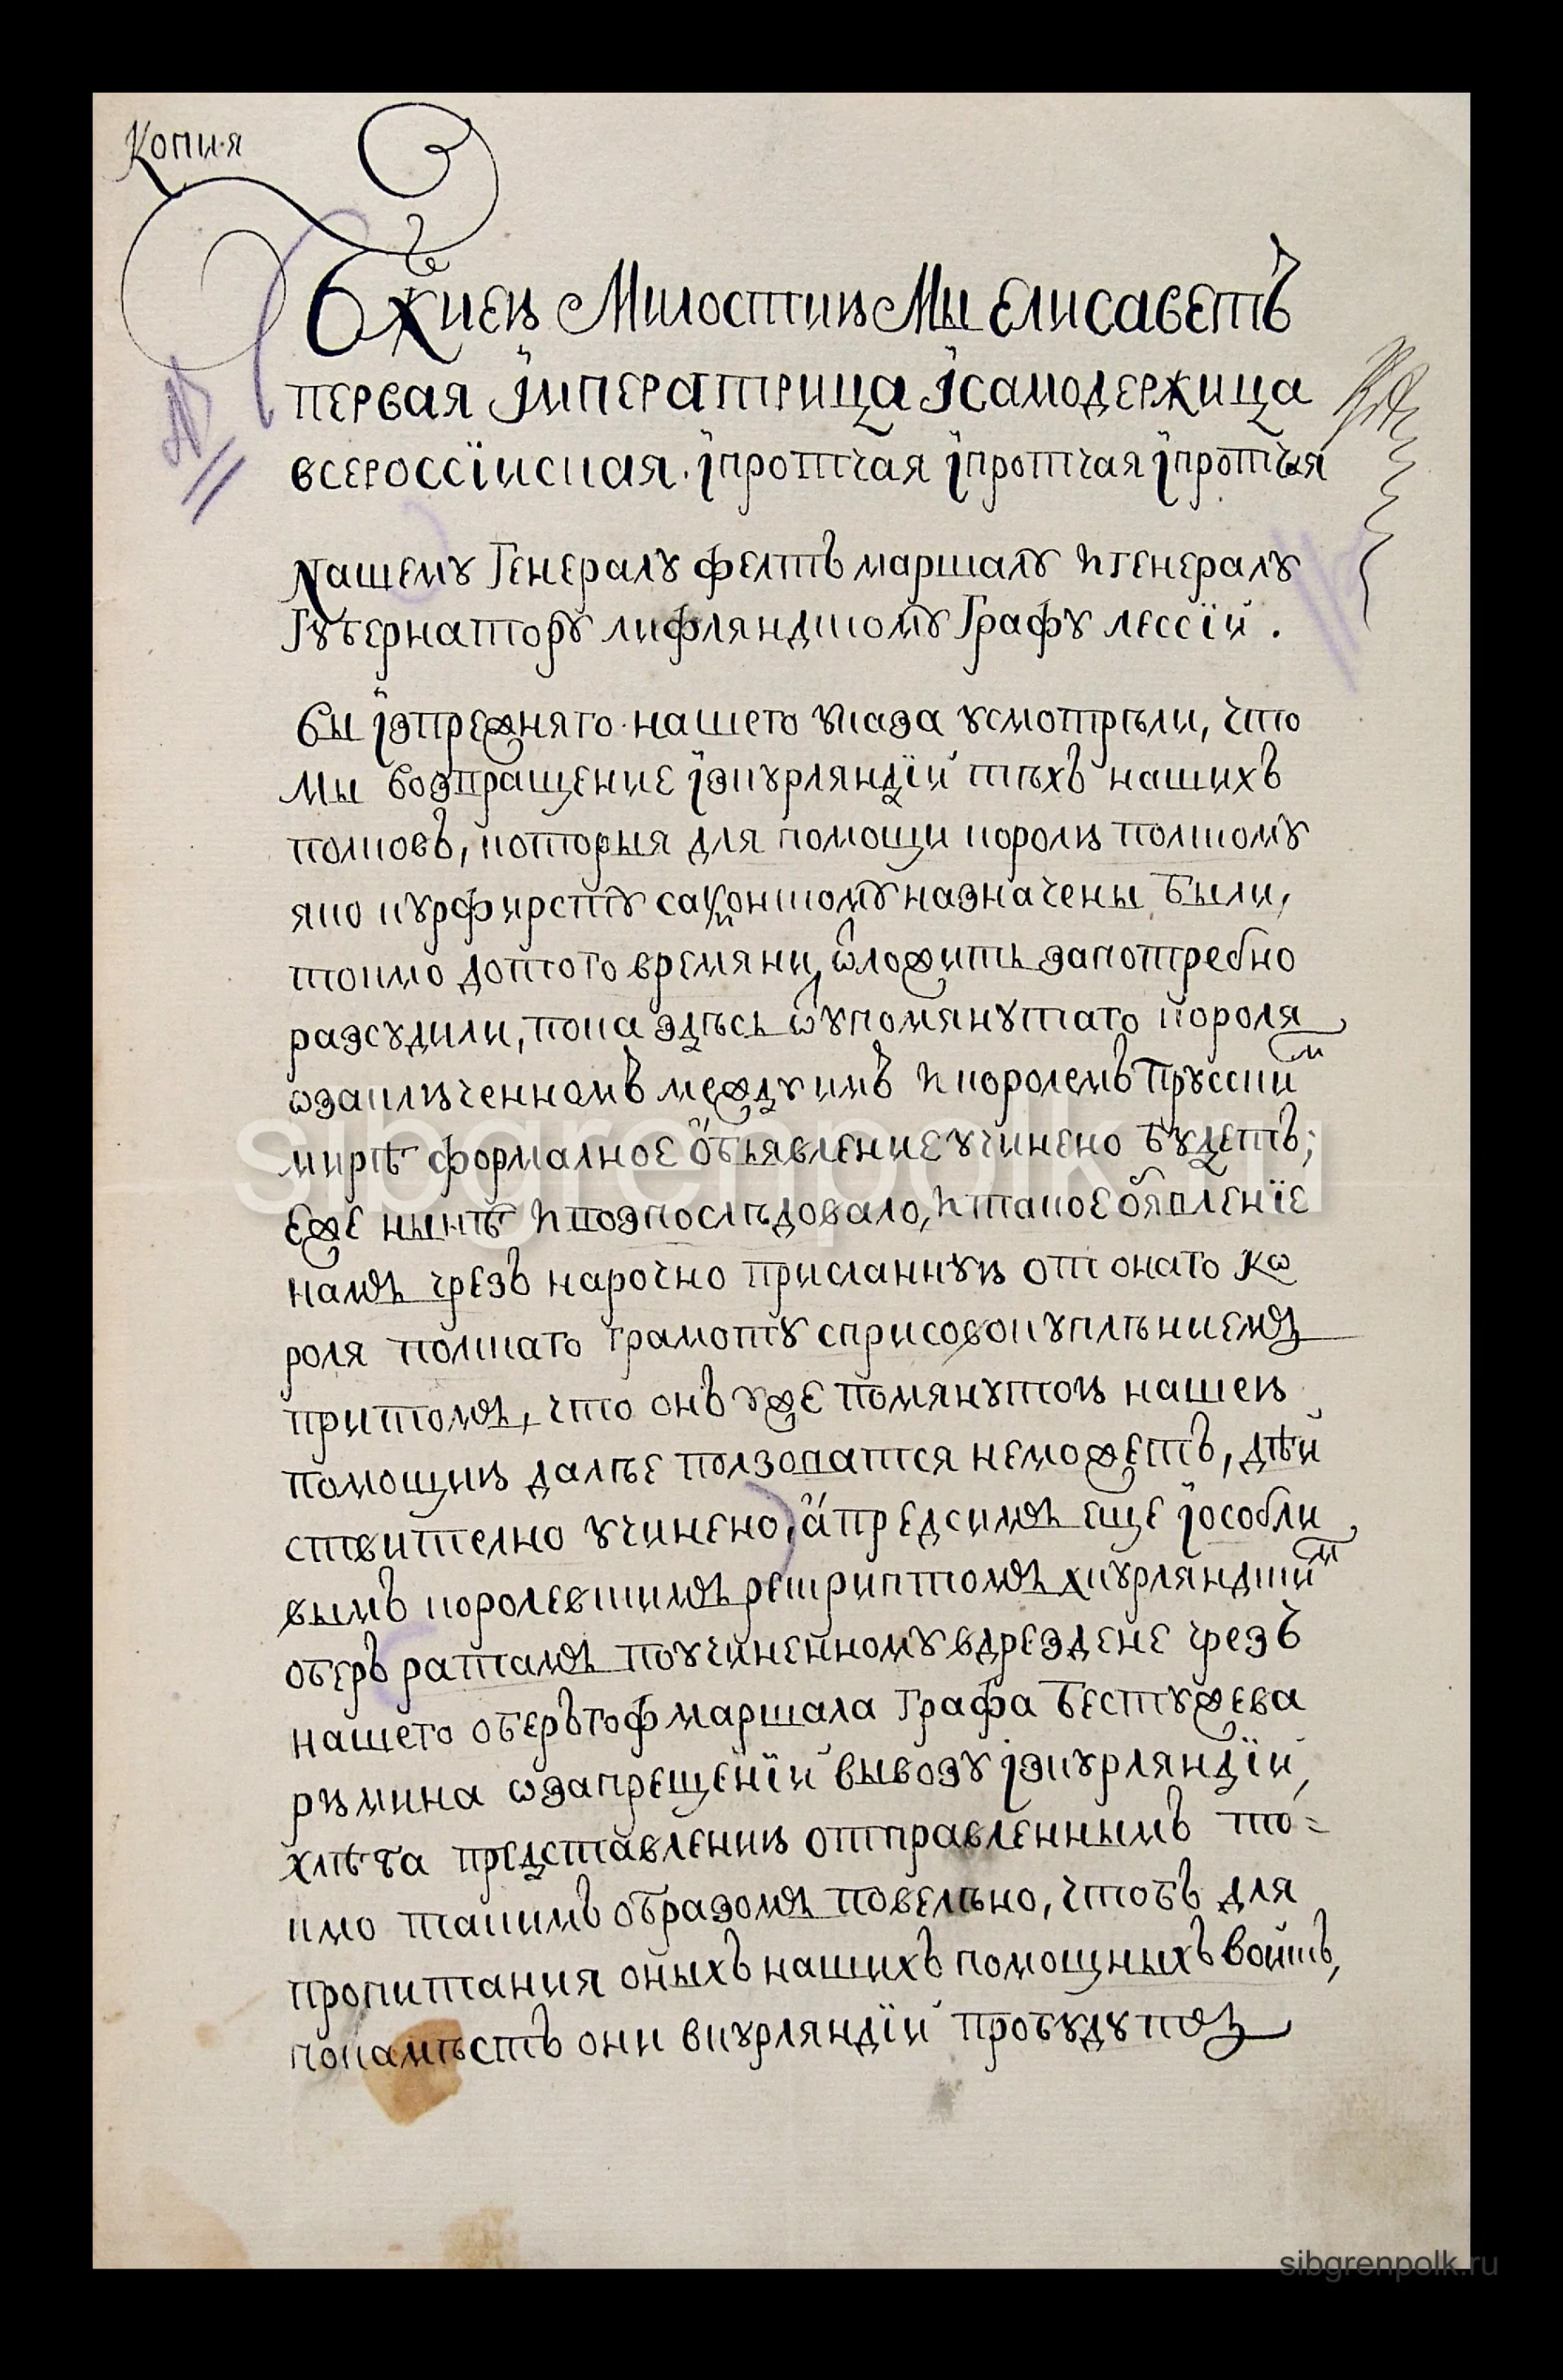 Копия
Бжиею Милостию Мы Елисаветъ
первая Їмператрица Їсамодержица
всероссїиская. їпротчая їпротчая їпротчая
Нашему Генералу фелтъ маршалу и генералу
Губернатору лифляндскому Графу лессїй.
Вы їзпрежняго нашего указа усмотрѣли, что
мы возвращение їзкурляндїй тѣхъ нашихъ
полковъ, которыя для помощи королю полскому
яко курфирсту саксонскому назначены были,
токмо дотого времяни, ѿложить запотребно
разсудили, пока здѣсь ѿупомянутаго короля
ѡзаключенномъ между имъ и королемъ прусским
мирѣ формалное объявление учинено будетъ;
еже нынѣ и воспослѣдовало, и такое объявленїе
намъ чрезъ нарочно присланную от онаго кѡ
роля полскаго грамоту сприсовокуплѣниемъ
притомъ, что онъ уже помянутою нашею
помощию далѣе ползоватся неможетъ, дѣй
ствително учинено, а предсимъ еще їособли
вымъ королевскимъ рескриптомъ ккурляндским
оберъ ратамъ поучиненному вдрездене чрезъ
нашего оберъгофмаршала графа Бестужева
рюмина ѡзапрещенїй вывозу їзкурляндїй,
хлѣба представлению отправленнымъ то=
кмо такимъ образомъ повелѣно, чтобъ для
пропитания оныхъ нашихъ помощныхъ войскъ,
покамѣстъ они вкурляндїй пробудутъ
sibgrenpolk.ru
sibgrenpolk.ru